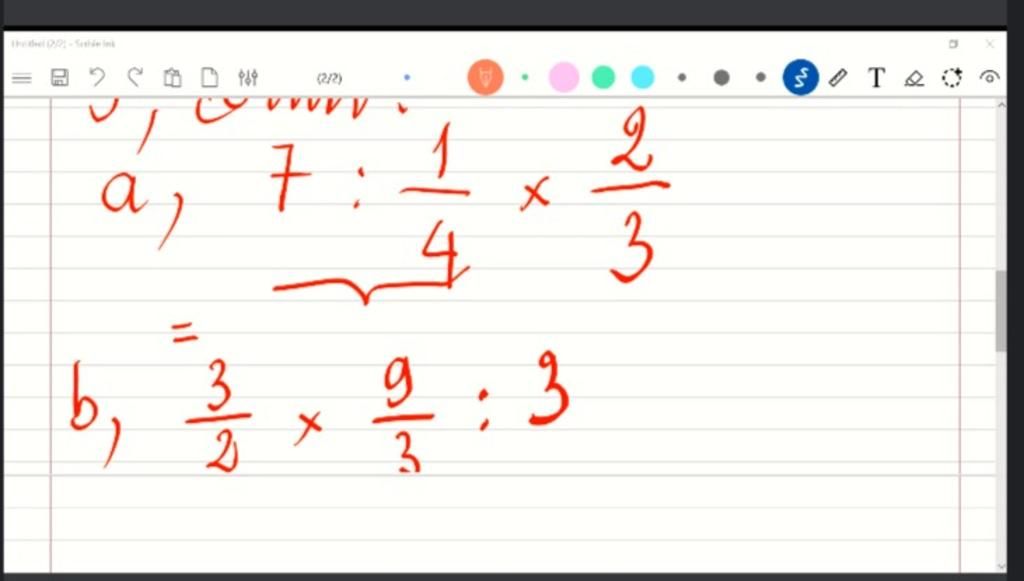 Untitled (2/2) - Scrble Ink
(2/2)
T
a, 7 : 1/4 × 2/3
=
b, 3/2 × 9/3 : 3